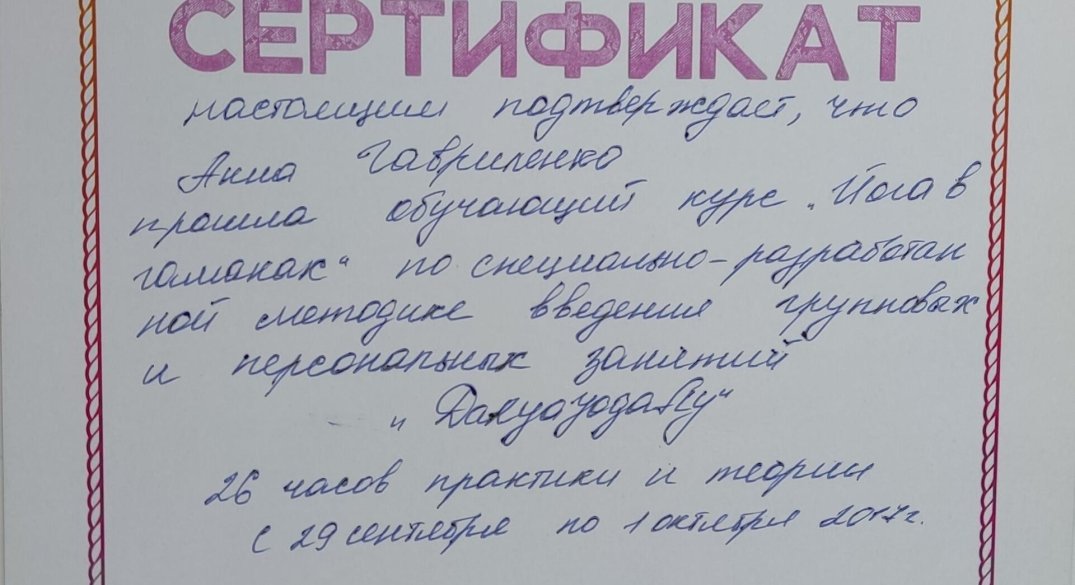 СЕРТИФИКАТ
настоящим подтверждает, что
Анна Гавриленко
прошла обучающий курс „Йога в
гамаках“ по специально-разработан
ной методике введения групповых
и персональных занятий
26 часов практики и теории
с 29 сентября по 1 октября 2017г.